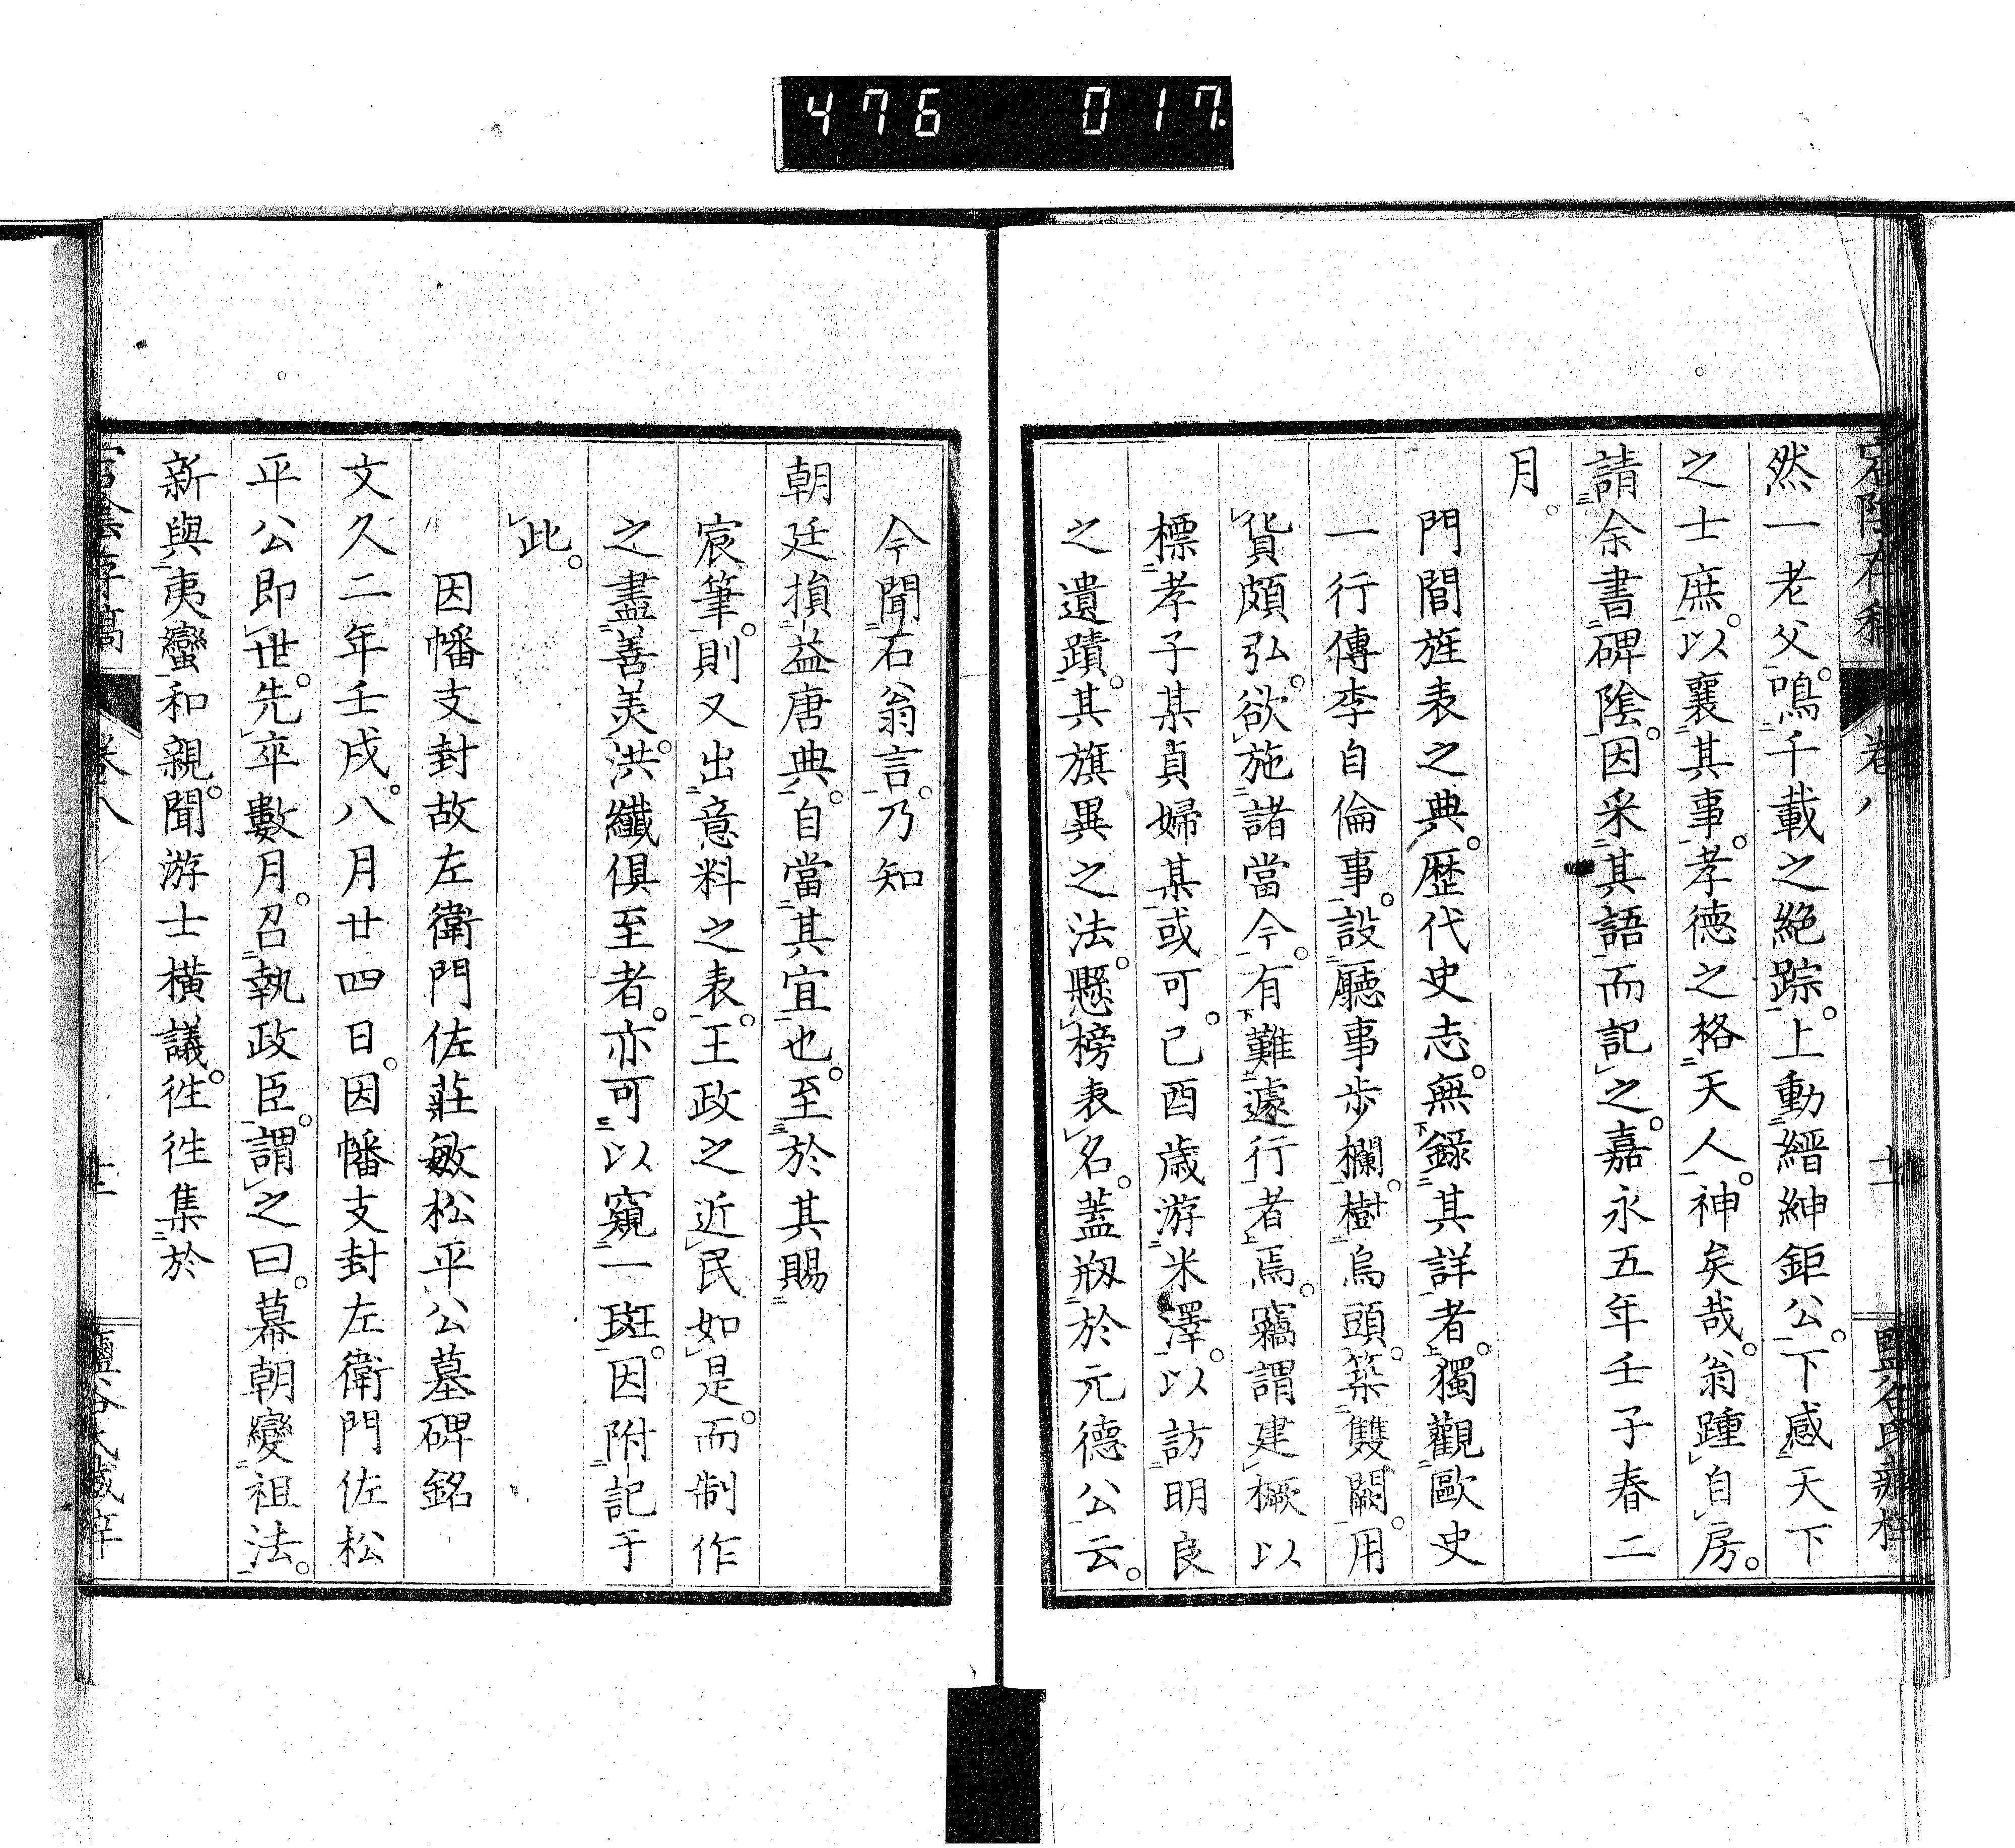 476 017.
宕陰存稿 卷八 十一
然一老父。鳴千載之絕踪。上動縉紳鉅公。下感天下
之士庶。以襄其事。孝德之格天人。神矣哉。翁踵自房。
請余書碑陰。因采其語而記之。嘉永五年壬子春二
月。
門閭旌表之典。歷代史志。無錄其詳者。獨觀歐史
一行傳李自倫事。設廳事步欄。樹烏頭。築雙闕。用
貲頗弘。欲施諸當今。有難遽行者焉。竊謂建橛以
標孝子某貞婦某。或可。己酉歲游米澤。以訪明良
之遺蹟。其旗異之法。懸榜表名。蓋刱於元德公云。
今聞石翁言。乃知
朝廷損益唐典。自當其宜也。至於其賜
宸筆。則又出意料之表。王政之近民如是。而制作
之盡善美。洪纖俱至者。亦可以窺一斑。因附記于
此。
因幡支封故左衛門佐莊敏松平公墓碑銘
文久二年壬戌。八月廿四日。因幡支封左衛門佐松
平公即世。先卒數月。召執政臣。謂之曰。幕朝變祖法。
新與夷蠻和親。聞游士橫議。徃徃集於
宕陰存稿 卷八 十二 鹽谷氏藏梓